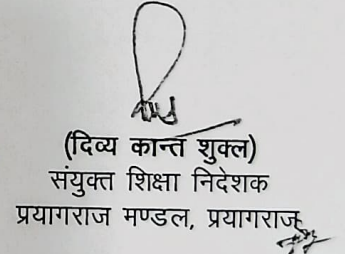 (दिव्य कान्त शुक्ल)
संयुक्त शिक्षा निदेशक
प्रयागराज मण्डल, प्रयागराज